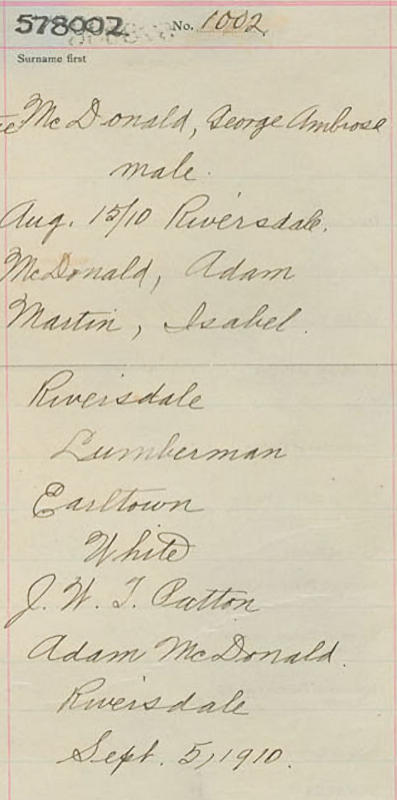 578002 No. 1002
Surname first
McDonald, George Ambrose
male.
Aug. 15/10 Riversdale.
McDonald, Adam
Martin, Isabel.
Riversdale
Lumberman
Earltown
White
J. W. T. Patton
Adam McDonald.
Riversdale
Sept. 5, 1910.